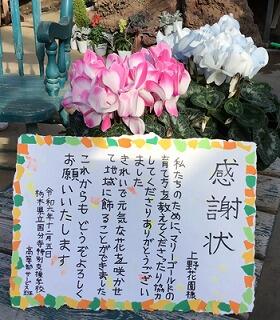 感謝状
上野花園様
私たちのために、マリーゴールドの
育て方を教えてくださったり協力
してくださりありがとうござい
ました。
きれいで元気な花を咲かせ
て地域に飾ることができました。
これからもどうぞよろしく
お願いいたします。
令和六年十二月五日
栃木県立国分寺特別支援学校
高等部サービス班